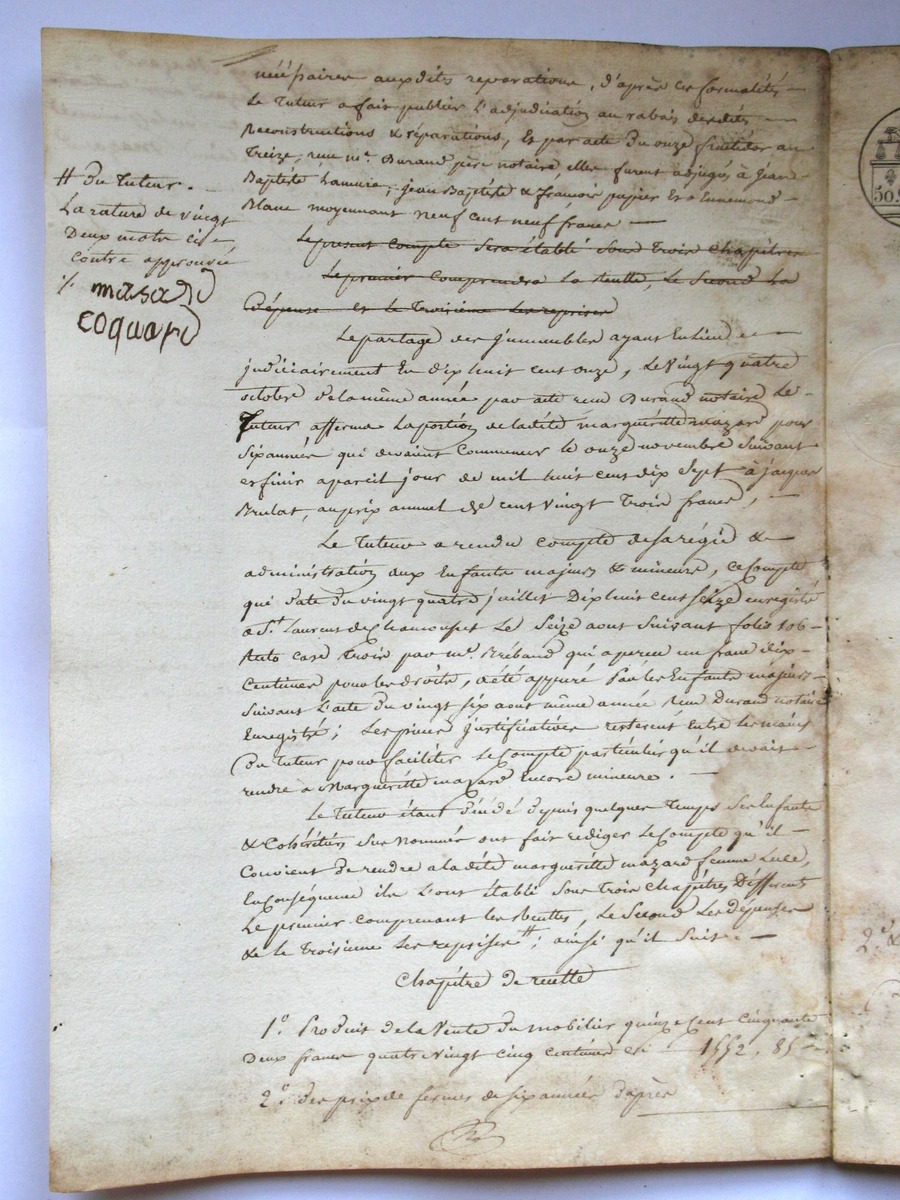 nécéssaires auxdites reparations, d'après ces formalités
Le Tuteur a fait publier L'adjudication au rabais desdites
Reconstructions & réparations, Et par acte du onze fructidor an
Treize, reçu m.e Durand père notaire elles furent adjugés à Jean
Baptiste Lamure, jean Baptiste & françois pupier Et Ennemond
Blanc moyennant neuf cent neuf francs
# Du tuteur.
La rature de vingt
Deux mots ci
contre approuvée
mazard
coquard
Le present compte Sera établi sous Trois chapitres
Le premier comprendra La Reutte, Le Second La
Dépense et le Troisieme Les reprises
Le partage des jmmeubles ayant Eu lieu
judiciairement En dix huit cent onze, Le Vingt quatre
octobre de la même année par acte reçu Durand notaire Le
Tuteur afferma La portion de ladite margueritte mazard pour
Six années qui devaient Commencer le onze novembre Suivant
et finir a pareil jour de mil huit cent dix Sept à jacques
Brulat, au prix annuel de cent Vingt Trois francs,
Le Tuteur a rendu compte de sa régie &
administration aux Enfants majeurs & mineurs, ce Compte
qui Date du vingt quatre juillet Dix huit cent seize enregistré
a St. Laurent de Chamousset Le Seize aout Suivant folio 106
recto case Trois par mr. Brébaud qui a perçu un franc dix
Centimes pour les droits, a été appuré Par les Enfants majeurs
Suivant L'acte du vingt six aout même année reçu Durand notaire
Enregistré; Les pieces justificatives resterent Entre les mains
Du tuteur pour faciliter Le Compte particulier qu'il devait
rendre à Margueritte mazard Encore mineure.
Le Tuteur étant Décédé Depuis quelques Temps Ses Enfants
& Cohéritiers Sus Nommés ont fait rédiger Le Compte qu'il
Convient De rendre a ladite margueritte mazard femme Luce,
En Conséquence ils L'ont établi Sous Trois Chapitres Différents
Le premier comprenant les Reuttes, Le Second Les Dépenses
& le Troisieme Les reprises #; ainsi qu'il Suit.
Chapitre De reutte
1.° Produit de la Vente Du mobilier quinze Cent Cinquante
Deux francs quatre Vingt Cinq Centimes ci 1552. 85
2.° des prix de fermes de six années d'après
50.
2.e